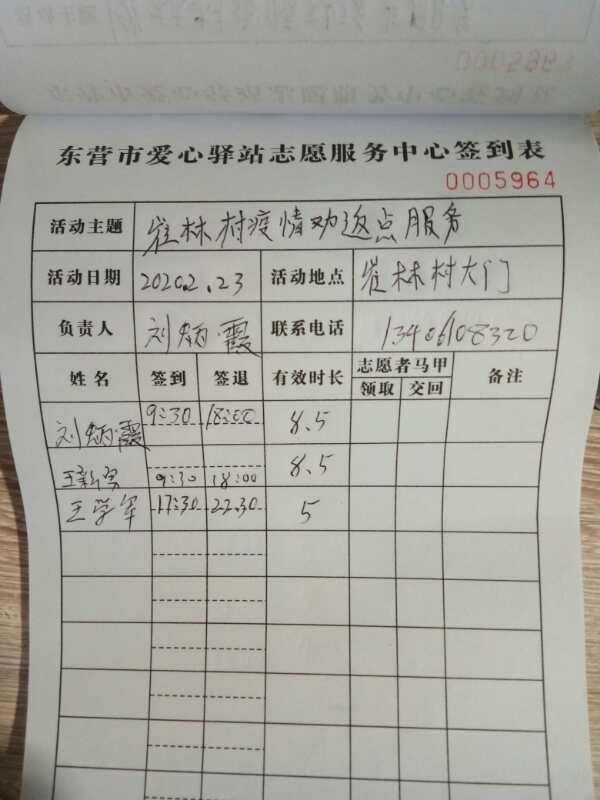 东营市爱心驿站志愿服务中心签到表
0005964
活动主题 崔林村疫情劝返点服务
活动日期 2020.2.23 活动地点 崔林村大门
负责人 刘炳霞 联系电话 13406108320
姓名 签到 签退 有效时长 志愿者马甲 备注
领取 交回
刘炳霞 9:30 18:00 8.5
9:30 18:00 8.5
王学军 17:30 22.30 5